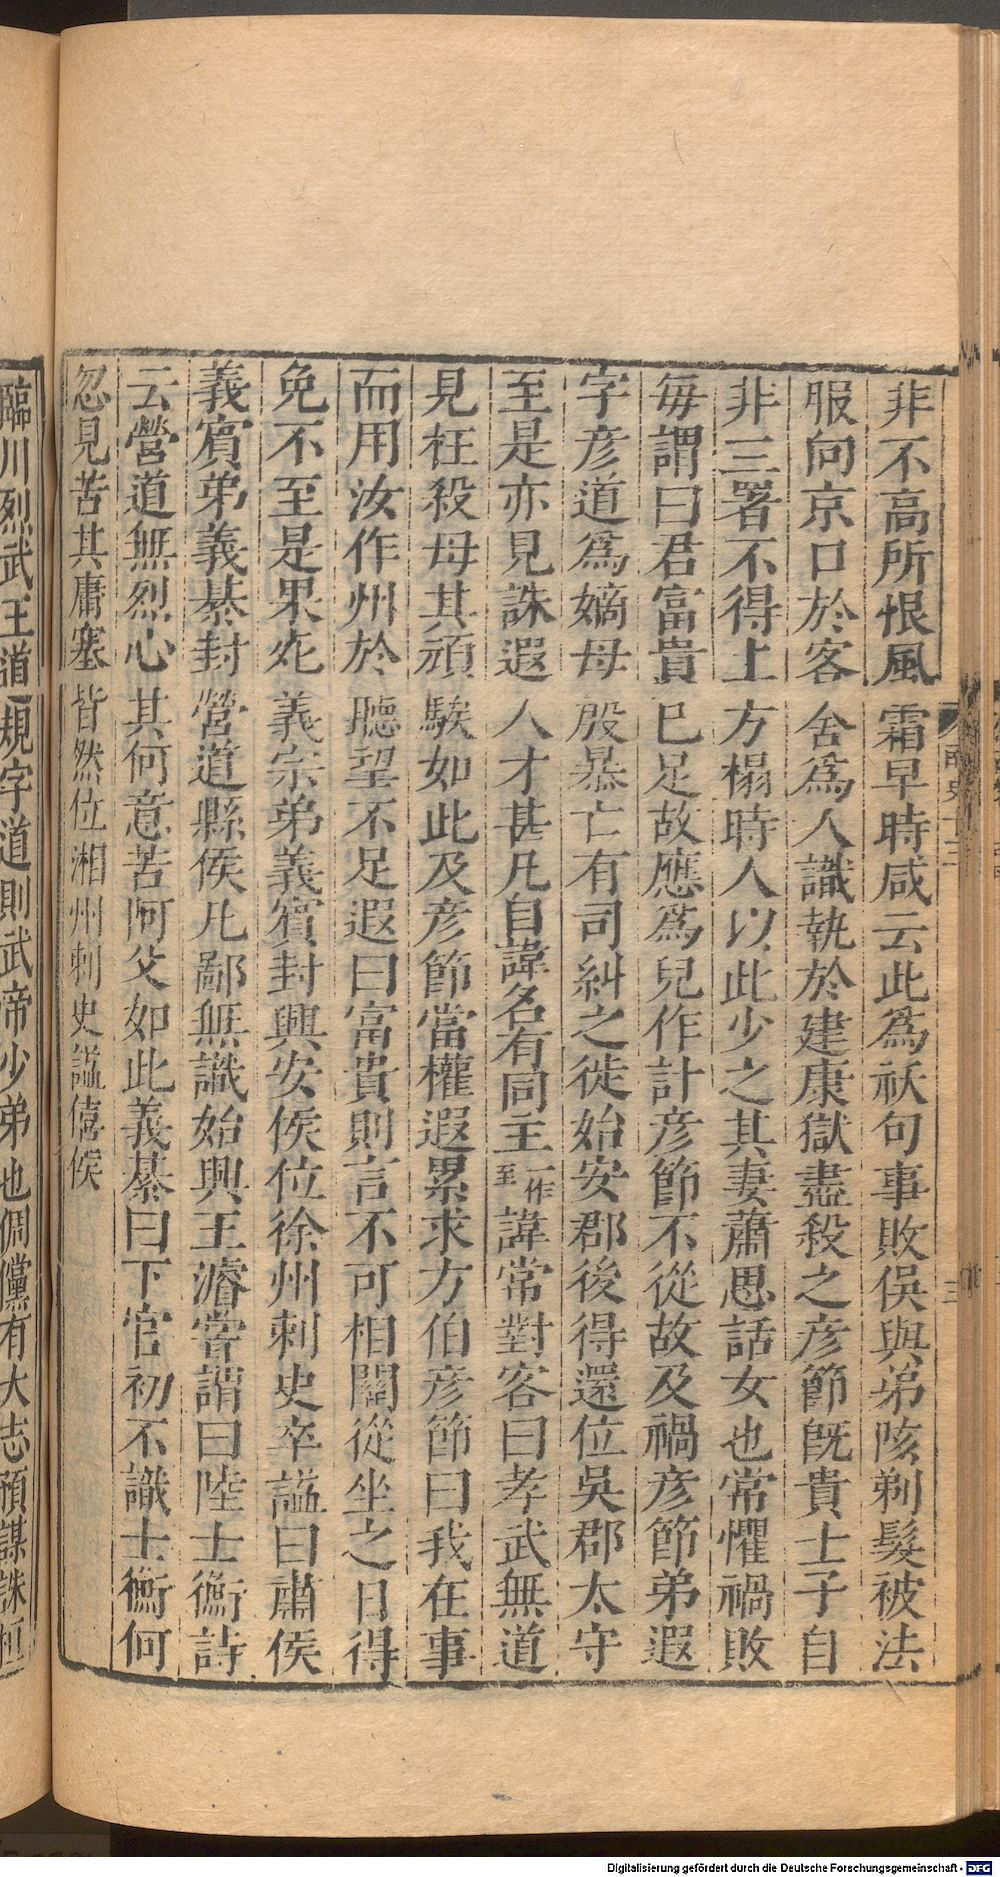 非不高所恨風霜早時咸云此爲祅句事敗俁與弟陔剃髮被法
服向京口於客舍爲人識執於建康獄盡殺之彦節旣貴士子自
非三署不得上方榻時人以此少之其妻蕭思話女也常懼禍敗
每謂曰君富貴已足故應爲兒作計彦節不從故及禍彦節弟遐
字彦道爲嫡母殷暴亡有司糾之徙始安郡後得還位吳郡太守
至是亦見誅遐人才甚凡自諱名有同主一作至諱常對客曰孝武無道
見枉殺母其頑騃如此及彦節當權遐累求方伯彦節曰我在事
而用汝作州於聽望不足遐曰富貴則言不可相關從坐之日得
免不至是果死義宗弟義賓封興安侯位徐州刺史卒謚曰肅侯
義賓弟義綦封營道縣侯凡鄙無識始興王濬嘗謂曰陸士衡詩
云營道無烈心其何意苦阿父如此義綦曰下官初不識士衡何
忽見苦其庸塞皆然位湘州刺史謚僖侯
臨川烈武王道規字道則武帝少弟也倜儻有大志預謀誅桓
Digitalisierung gefördert durch die Deutsche Forschungsgemeinschaft - DFG